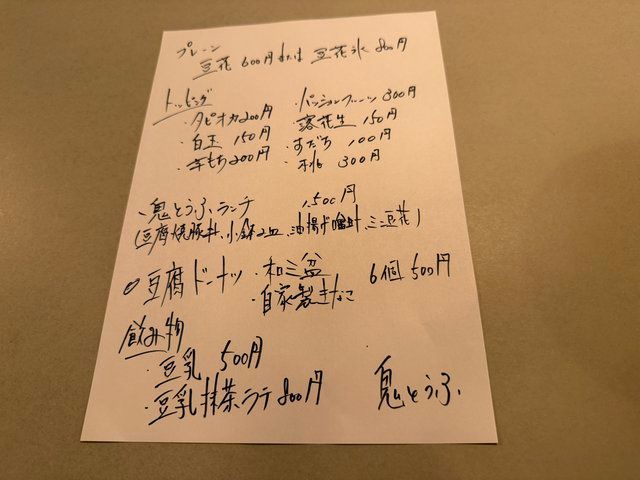 プレーン
豆花 600円 または 豆花氷 800円
トッピング
・タピオカ200円
・白玉 150円
・芋もち200円
・パッションフルーツ 300円
・落花生 150円
・すだち 100円
・桃 300円
・鬼とうふランチ 1,500円
(豆腐焼豚丼、小鉢2皿、油揚げ味噌汁、ミニ豆花)
豆腐ドーナツ ・和三盆 6個 500円
・自家製きなこ
飲み物
・豆乳 500円
・豆乳抹茶ラテ 800円
鬼とうふ